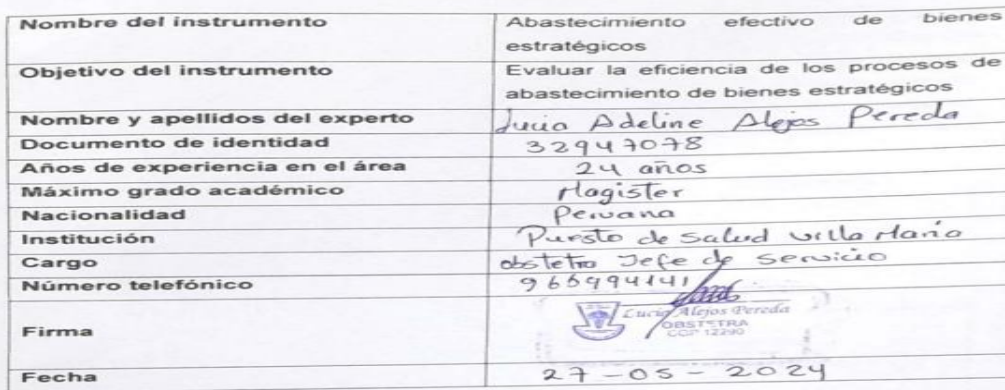 Nombre del instrumento Abastecimiento efectivo de bienes
estratégicos
Objetivo del instrumento Evaluar la eficiencia de los procesos de
abastecimiento de bienes estratégicos
Nombre y apellidos del experto Lucia Adeline Alejos Pereda
Documento de identidad 32947078
Años de experiencia en el área 24 años
Máximo grado académico Magister
Nacionalidad Peruana
Institución Puesto de Salud Villa María
Cargo obstetra Jefe de Servicio
Número telefónico 966994141
Firma
Lucia Alejos Pereda
OBSTETRA
COP 12290
Fecha 27-05-2024